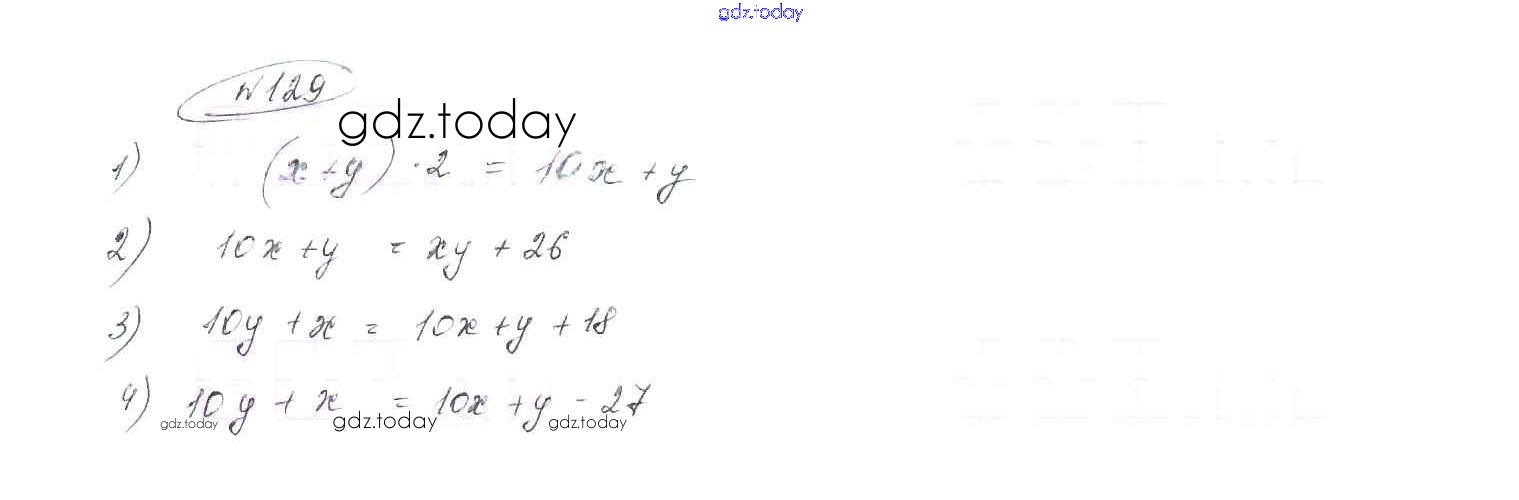 gdz.today
№129
gdz.today
1) (x+y)·2 = 10x+y
2) 10x+y = xy+26
3) 10y+x = 10x+y+18
4) 10y+x = 10x+y-27
gdz.today gdz.today gdz.today